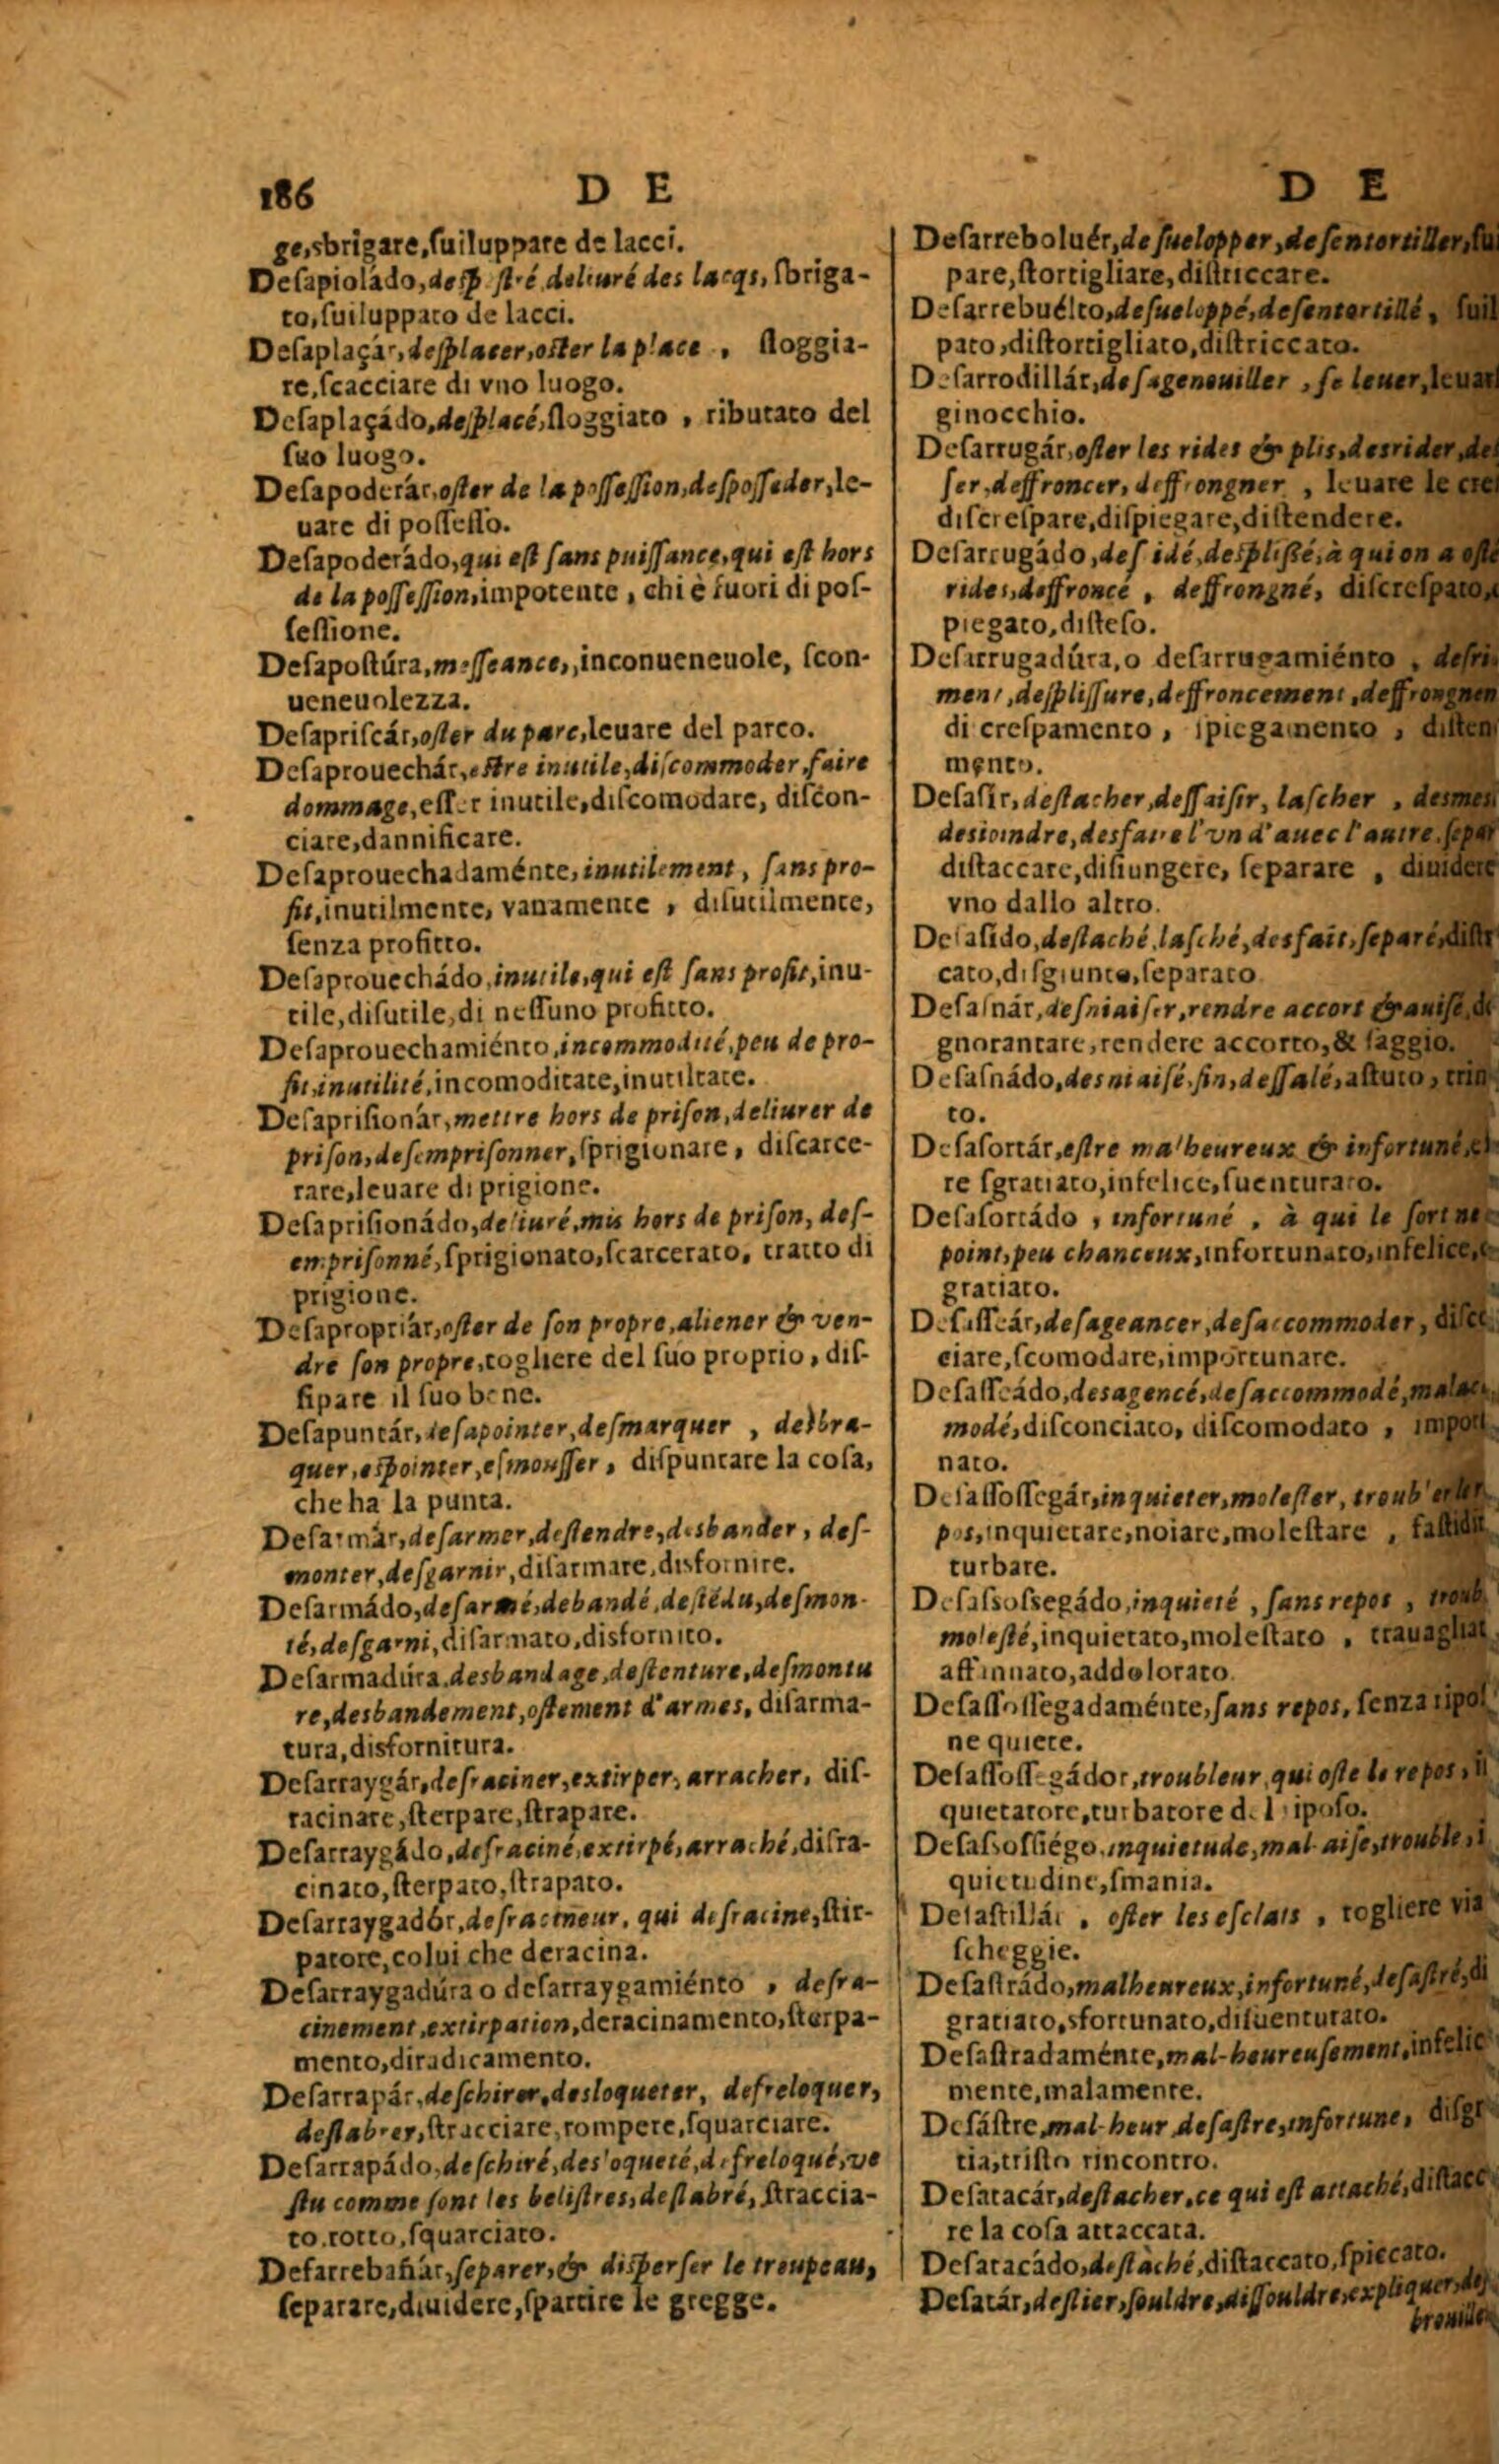 186 D E
ge,sbrigare,ſuiluppare de lacci.
Deſapioládo, deliuré des lacqs, ſbriga-
to,ſuiluppato de lacci.
Deſaplaçár,deſplacer,oſter la place , ſloggia-
re,ſcacciare di vno luogo.
Deſaplaçádo,deſplacé,ſloggiato , ributato del
ſuo luogo.
Deſapoderár,oſter de la poſſeſſion,deſpoſſeder,le-
uare di poſſeſſo.
Deſapoderádo,qui eſt ſans puiſſance,qui eſt hors
de la poſſeſſion,impotente , chi è fuori di poſ-
ſeſſione.
Deſapoſtúra,meſſeance,,inconueneuole, ſcon-
ueneuolezza.
Deſapriſcár,oſter du parc,leuare del parco.
Deſaprouechár,eſtre inutile,diſcommoder,faire
dommage,eſſer inutile,diſcomodare, diſcon-
ciare,dannificare.
Deſaprouechadaménte,inutilement, ſans pro-
fit,inutilmente, vanamente , diſutilmente,
ſenza profitto.
Deſaprouechádo,inutile,qui eſt ſans profit,inu-
tile,diſutile,di neſſuno profitto.
Deſaprouechamiénto,incommodité,peu de pro-
fit,inutilité,incomoditate,inutiltate.
Deſapriſionár,mettre hors de priſon,deliurer de
priſon,deſempriſonner,ſprigionare, diſcarce-
rare,leuare di prigione.
Deſapriſionádo,deliuré,mis hors de priſon, deſ-
empriſonné,ſprigionato,ſcarcerato, tratto di
prigione.
Deſapropriár,oſter de ſon propre,aliener & ven-
dre ſon propre,togliere del ſuo proprio, diſ-
ſipare il ſuo bene.
Deſapuntár,deſapointer,deſmarquer , desbra-
quer,eſpointer,eſmouſſer, diſpuntare la coſa,
che ha la punta.
Deſarmár,deſarmer,deſtendre,desbander, deſ-
monter,deſgarnir,diſarmare,disfornire.
Deſarmádo,deſarmé,debandé,deſtédu,deſmon-
té,deſgarni,diſarmato,disfornito.
Deſarmadúra,desbandage,deſtenture,deſmontu
re,desbandement,oſtement d'armes, diſarma-
tura,disfornitura.
Deſarraygár,deſraciner,extirper, arracher, diſ-
racinare,ſterpare,ſtrapare.
Deſarraygádo,deſraciné,extirpé,arraché,diſra-
cinato,ſterpato,ſtrapato.
Deſarraygadór,deſracineur, qui deſracine,ſtir-
patore,colui che deracina.
Deſarraygadúra o deſarraygamiénto , deſra-
cinement,extirpation,deracinamento,ſterpa-
mento,diradicamento.
Deſarrapár,deſchirer,desloqueter, defreloquer,
deſlabrer,ſtracciare,rompere,ſquarciare.
Deſarrapádo,deſchiré,desloqueté,defreloqué,ve
ſtu comme ſont les beliſtres,deſlabré,ſtraccia-
to,rotto,ſquarciato.
Deſarrebañár,ſeparer,& diſperſer le troupeau,
ſeparare,diuidere,ſpartire le gregge.
D E
Deſarreboluér,deſuelopper,deſentortiller,ſui
pare,ſtortigliare,diſtriccare.
Deſarrebuélto,deſueloppé,deſentortillé, ſuil
pato,diſtortigliato,diſtriccato.
Deſarrodillár,deſagenouiller , ſe leuer,leuar
ginocchio.
Deſarrugár,oſter les rides & plis,desrider,deſ
ſer,deffroncer, deffrongner , leuare le cre
diſcreſpare,diſpiegare,diſtendere.
Deſarrugádo,deſridé,deſpliſſé,à qui on a oſté
rides,deffroncé , deffrongné, diſcreſpato,
piegato,diſteſo.
Deſarrugadúra,o deſarrugamiénto , deſri-
ment,deſpliſſure,deffroncement,deffrongnen
di creſpamento , ſpiegamento , diſten
mento.
Deſaſir,deſtacher,deſſaiſir, laſcher , desmeſ
desioindre,desfaire l'vn d'auec l'autre,ſepar
diſtaccare,diſiungere, ſeparare , diuidere
vno dallo altro.
Deſaſido,deſtaché,laſché,desfait,ſeparé,diſt
cato,diſgiunto,ſeparato
Deſaſnár,deſniaiſer,rendre accort & auiſé,di
gnorantare,rendere accorto,& ſaggio.
Deſaſnádo,desniaiſé,fin,deſſalé,aſtuto, trin
to.
Deſaſortár,eſtre malheureux & infortuné,eſ
re ſgratiato,infelice,ſuenturato.
Deſaſortádo , infortuné , à qui le ſort ne
point,peu chanceux,infortunato,infelice,
gratiato.
Deſaſſeár,deſageancer,deſaccommoder, diſc
ciare,ſcomodare,importunare.
Deſaſſeádo,desagencé,deſaccommodé,malac
modé,diſconciato, diſcomodato , import
nato.
Deſaſſoſſegár,inquieter,moleſter, troubler le r
pos,inquietare,noiare,moleſtare , faſtidi
turbare.
Deſaſsoſsegádo,inquieté , ſans repos , troub
moleſté,inquietato,moleſtato , trauagliat
affannato,addolorato
Deſaſſoſſegadaménte,ſans repos, ſenza ripoſ
ne quiete.
Deſaſſoſſegádor,troubleur,qui oſte le repos, i
quietatore,turbatore del ripoſo.
Deſaſsoſſiégo,inquietude,mal-aiſe,trouble, i
quietudine,ſmania.
Deſaſtillár , oſter les eſclats , togliere via
ſcheggie.
Deſaſtrádo,malheureux,infortuné,deſaſtré,di
gratiato,sfortunato,diſuenturato.
Deſaſtradaménte,mal-heureuſement,infelic
mente,malamente.
Deſáſtre,mal-heur,deſaſtre,infortune, diſgr
tia,triſto rincontro.
Deſatacár,deſtacher,ce qui eſt attaché,diſtacc
re la coſa attaccata.
Deſatacádo,deſtaché,diſtaccato,ſpiccato.
Deſatár,deſlier,ſouldre,diſſouldre,expliquer,deſ
brouille